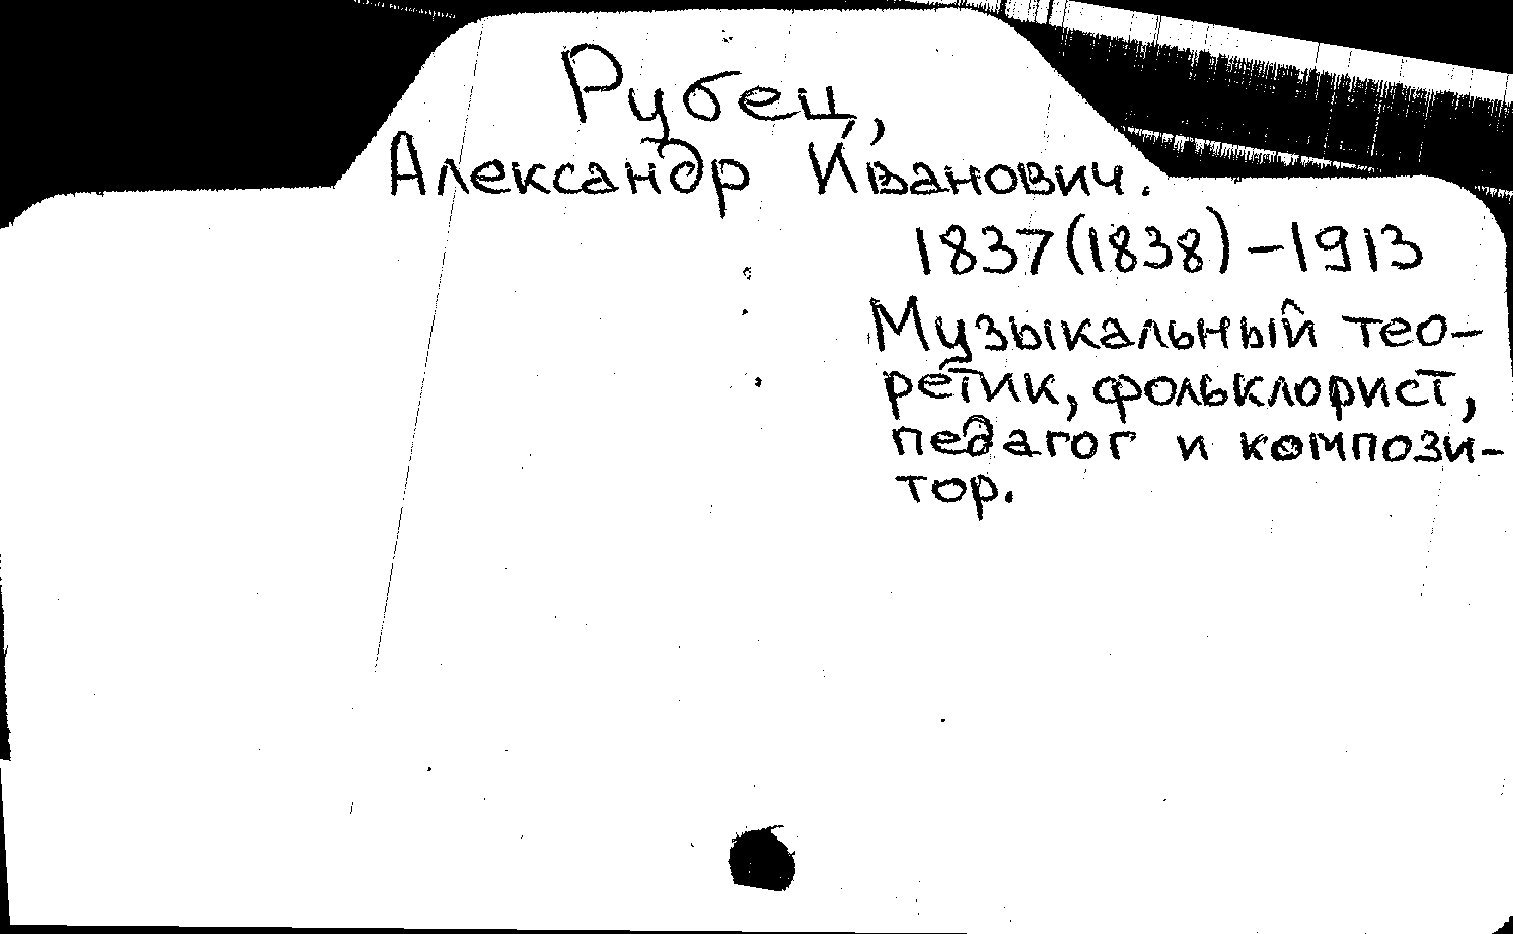 Рубец,
Александр Иванович.
1837(1838)-1913
Музыкальный тео-
ретик, фольклорист,
педагог и компози-
тор.